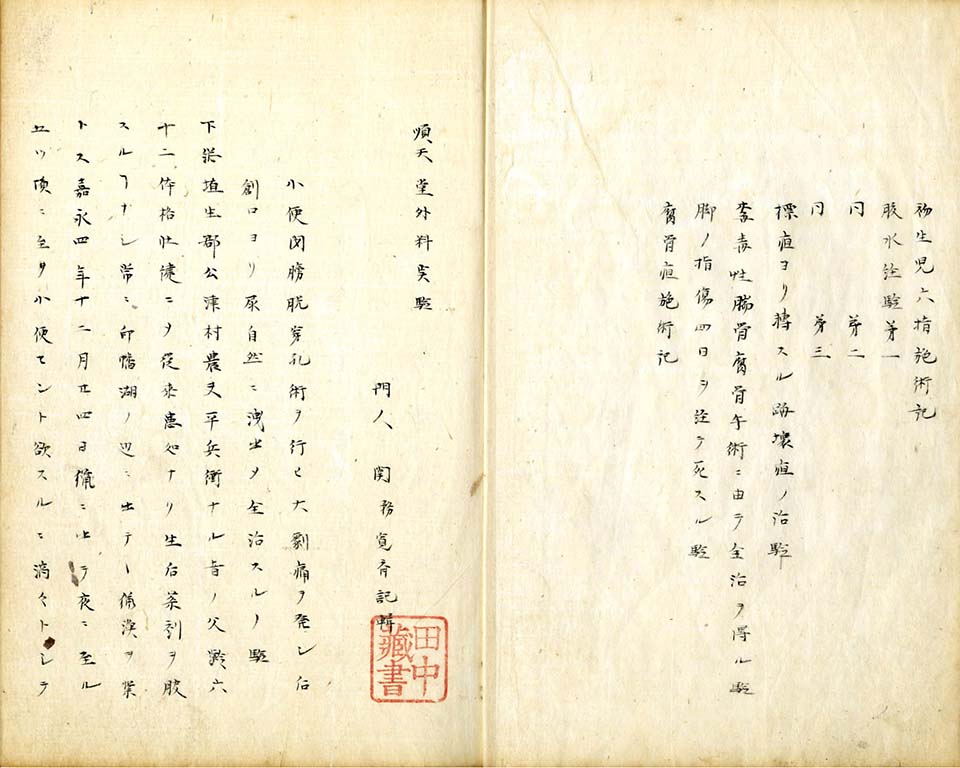 初生児六指施術記
胶水注験第一
同 第二
同 第三
標疽ヨリ轉スル 壊疽ノ治験
毒性腨骨腐骨午術ニ由テ全治ヲ得ル験
脚ノ指傷四日ヲ注テ死スル験
腐骨疽施術記
順天堂外科実験
門人 関務寛斉記輯
小便閉膀胱穿孔術ヲ行ヒ大劇痛ヲ発シ后
創口ヨリ尿自然ニ洩出〆全治スルノ験
下総埴生郡公津村農夫平兵衛ナル者ノ父齢六
十二体格壮健ニ〆従来恙ナリ生后薬剤ヲ服
スルヿナシ常ニ印旛湖ノ辺ニ出テ 漁ヲ業
トス嘉永四年十二月廿四日 ニ出テ夜ニ至ル
五ツ頃ニ至リ小便セント欲スルニ滴々トシテ
田中
藏書